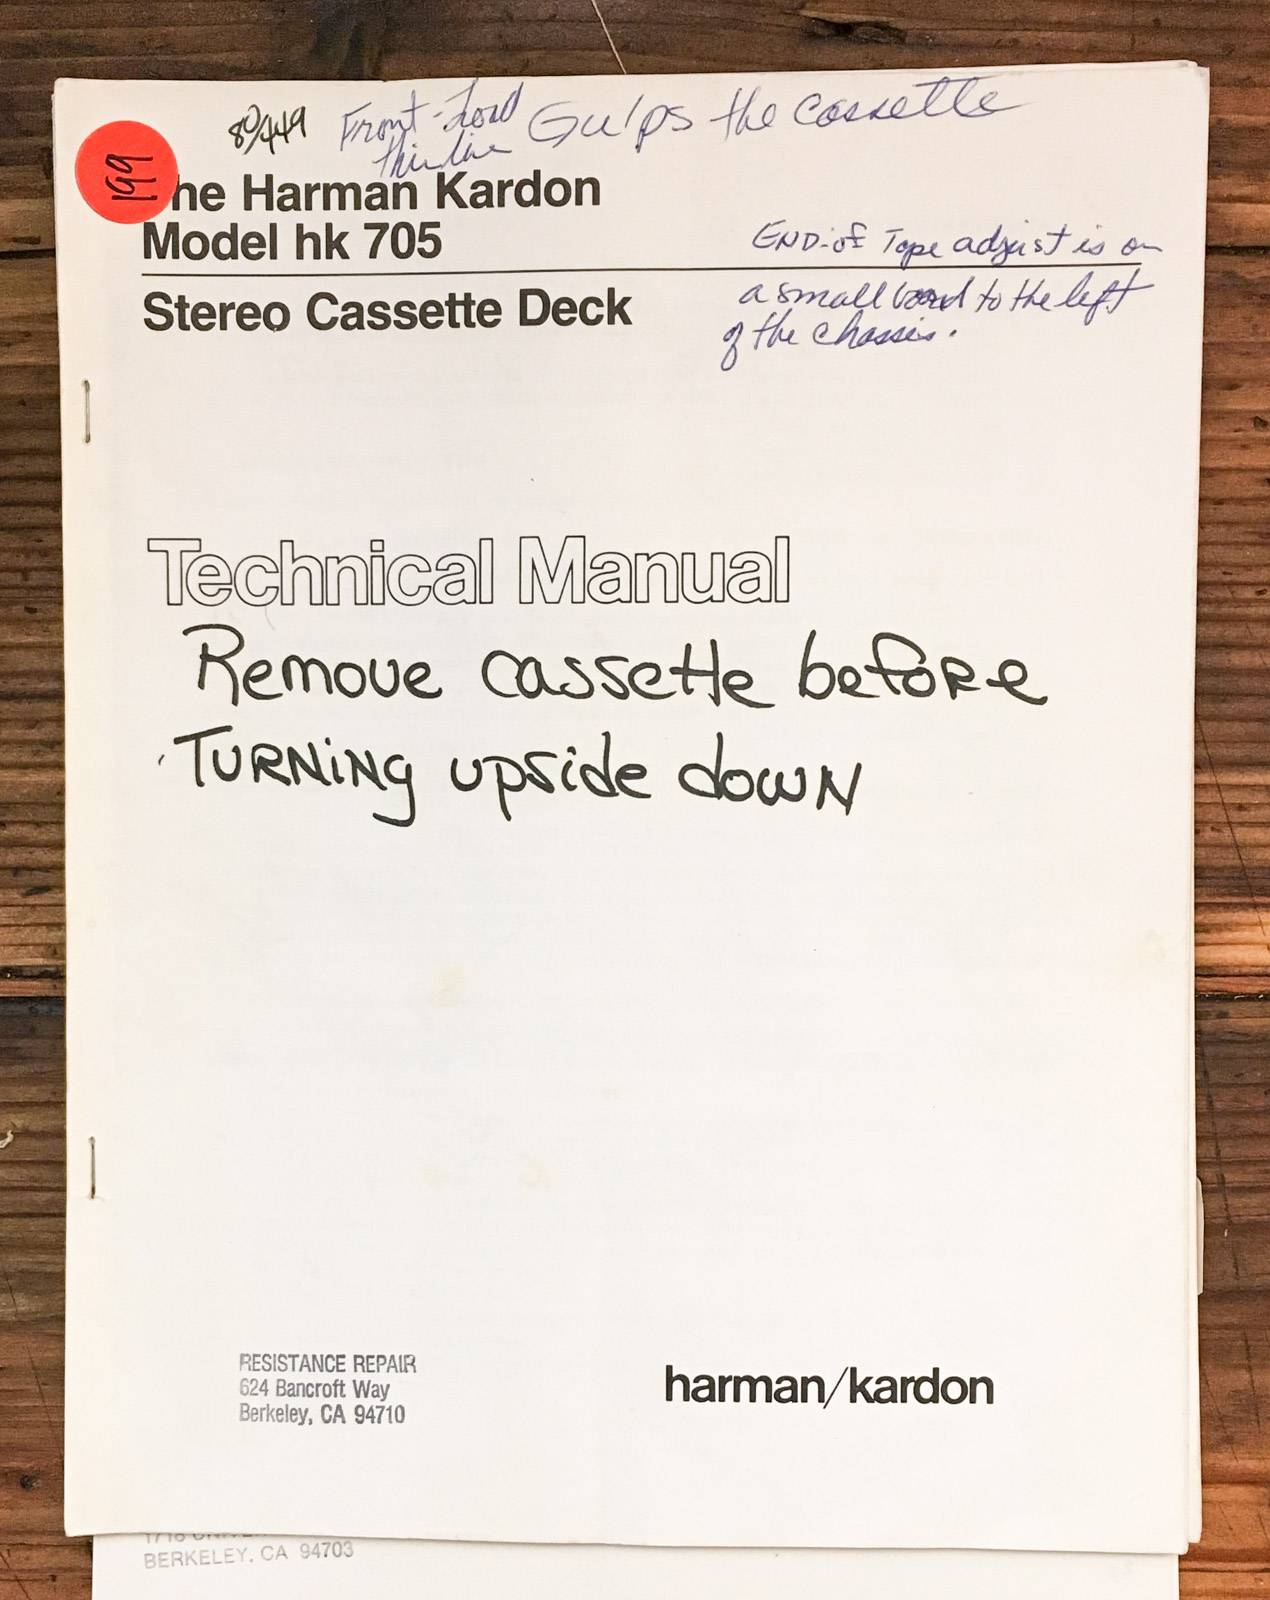 80/449 Front-Load Gulps the cassette
thinline
199
he Harman Kardon
Model hk 705
Stereo Cassette Deck
END-of Tape adjust is on
a small board to the left
of the chassis.
Technical Manual
Remove cassette before
Turning upside down
RESISTANCE REPAIR
624 Bancroft Way
Berkeley, CA 94710
harman/kardon
BERKELEY, CA 94703